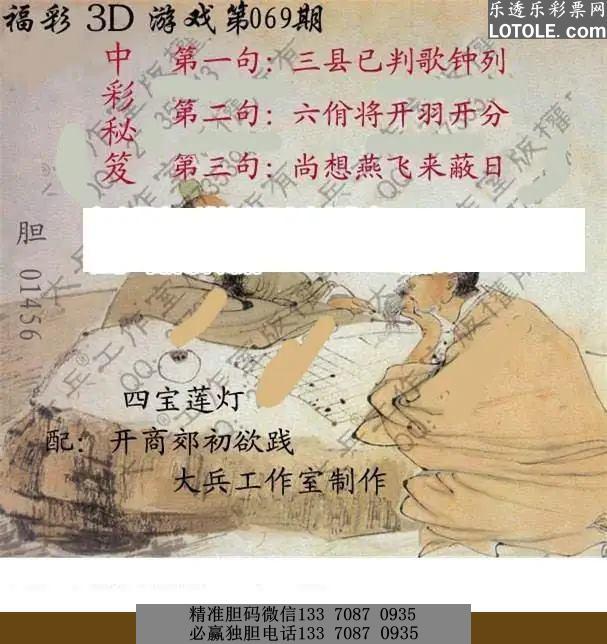 福彩 3D 游戏第069期
乐透乐彩票网
LOTOLE.COM
中彩秘笈
第一句：三县已判歌钟列
第二句：六佾将开羽开分
第三句：尚想燕飞来蔽日
胆 01456
四宝莲灯
配：开商郊初欲践
大兵工作室制作
精准胆码微信133 7087 0935
必赢独胆电话133 7087 0935